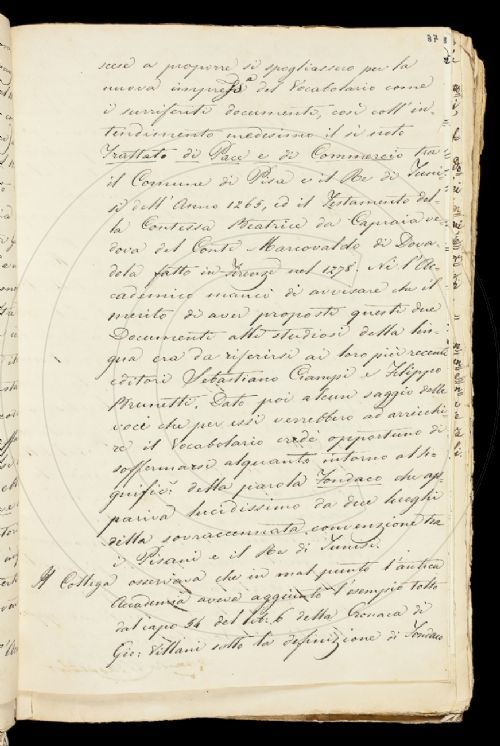 37
scese a proporre si spogliassero per la
nuova impres.ª del Vocabolario come
i surriferiti documenti, così coll'in-
tendimento medesimo il sì noto
Trattato di Pace e di Commercio tra
il Comune di Pisa e il Re di Tuni-
si dell'Anno 1265, ed il Testamento del-
la Contessa Beatrice da Capraia ve-
dova del Conte Marcovaldo di Dova-
dola fatto in Firenze nel 1278. Nè l'Ac-
cademico mancò di avvisare che il
merito di aver proposti questi due
Documenti alli studiosi della lin-
gua era da riferirsi ai loro più recenti
editori Sebastiano Ciampi e Filippo
Brunetti. Dato poi alcun saggio delle
voci che per essi verrebbero ad arricchi-
re il Vocabolario credè opportuno di
soffermarsi alquanto intorno al si-
gnific.º della parola Fondaco che ap-
pariva lucidissimo da due luoghi
della sovraccennata convenzione tra
i Pisani e il Re di Tunisi.
Il Collega osservava che in mal punto l'antica
Accademia aveva aggiunto l'esempio tolto
dal capo 54 del lib. 6 della Cronaca di
Gio: Villani sotto la definizione di Fondaco